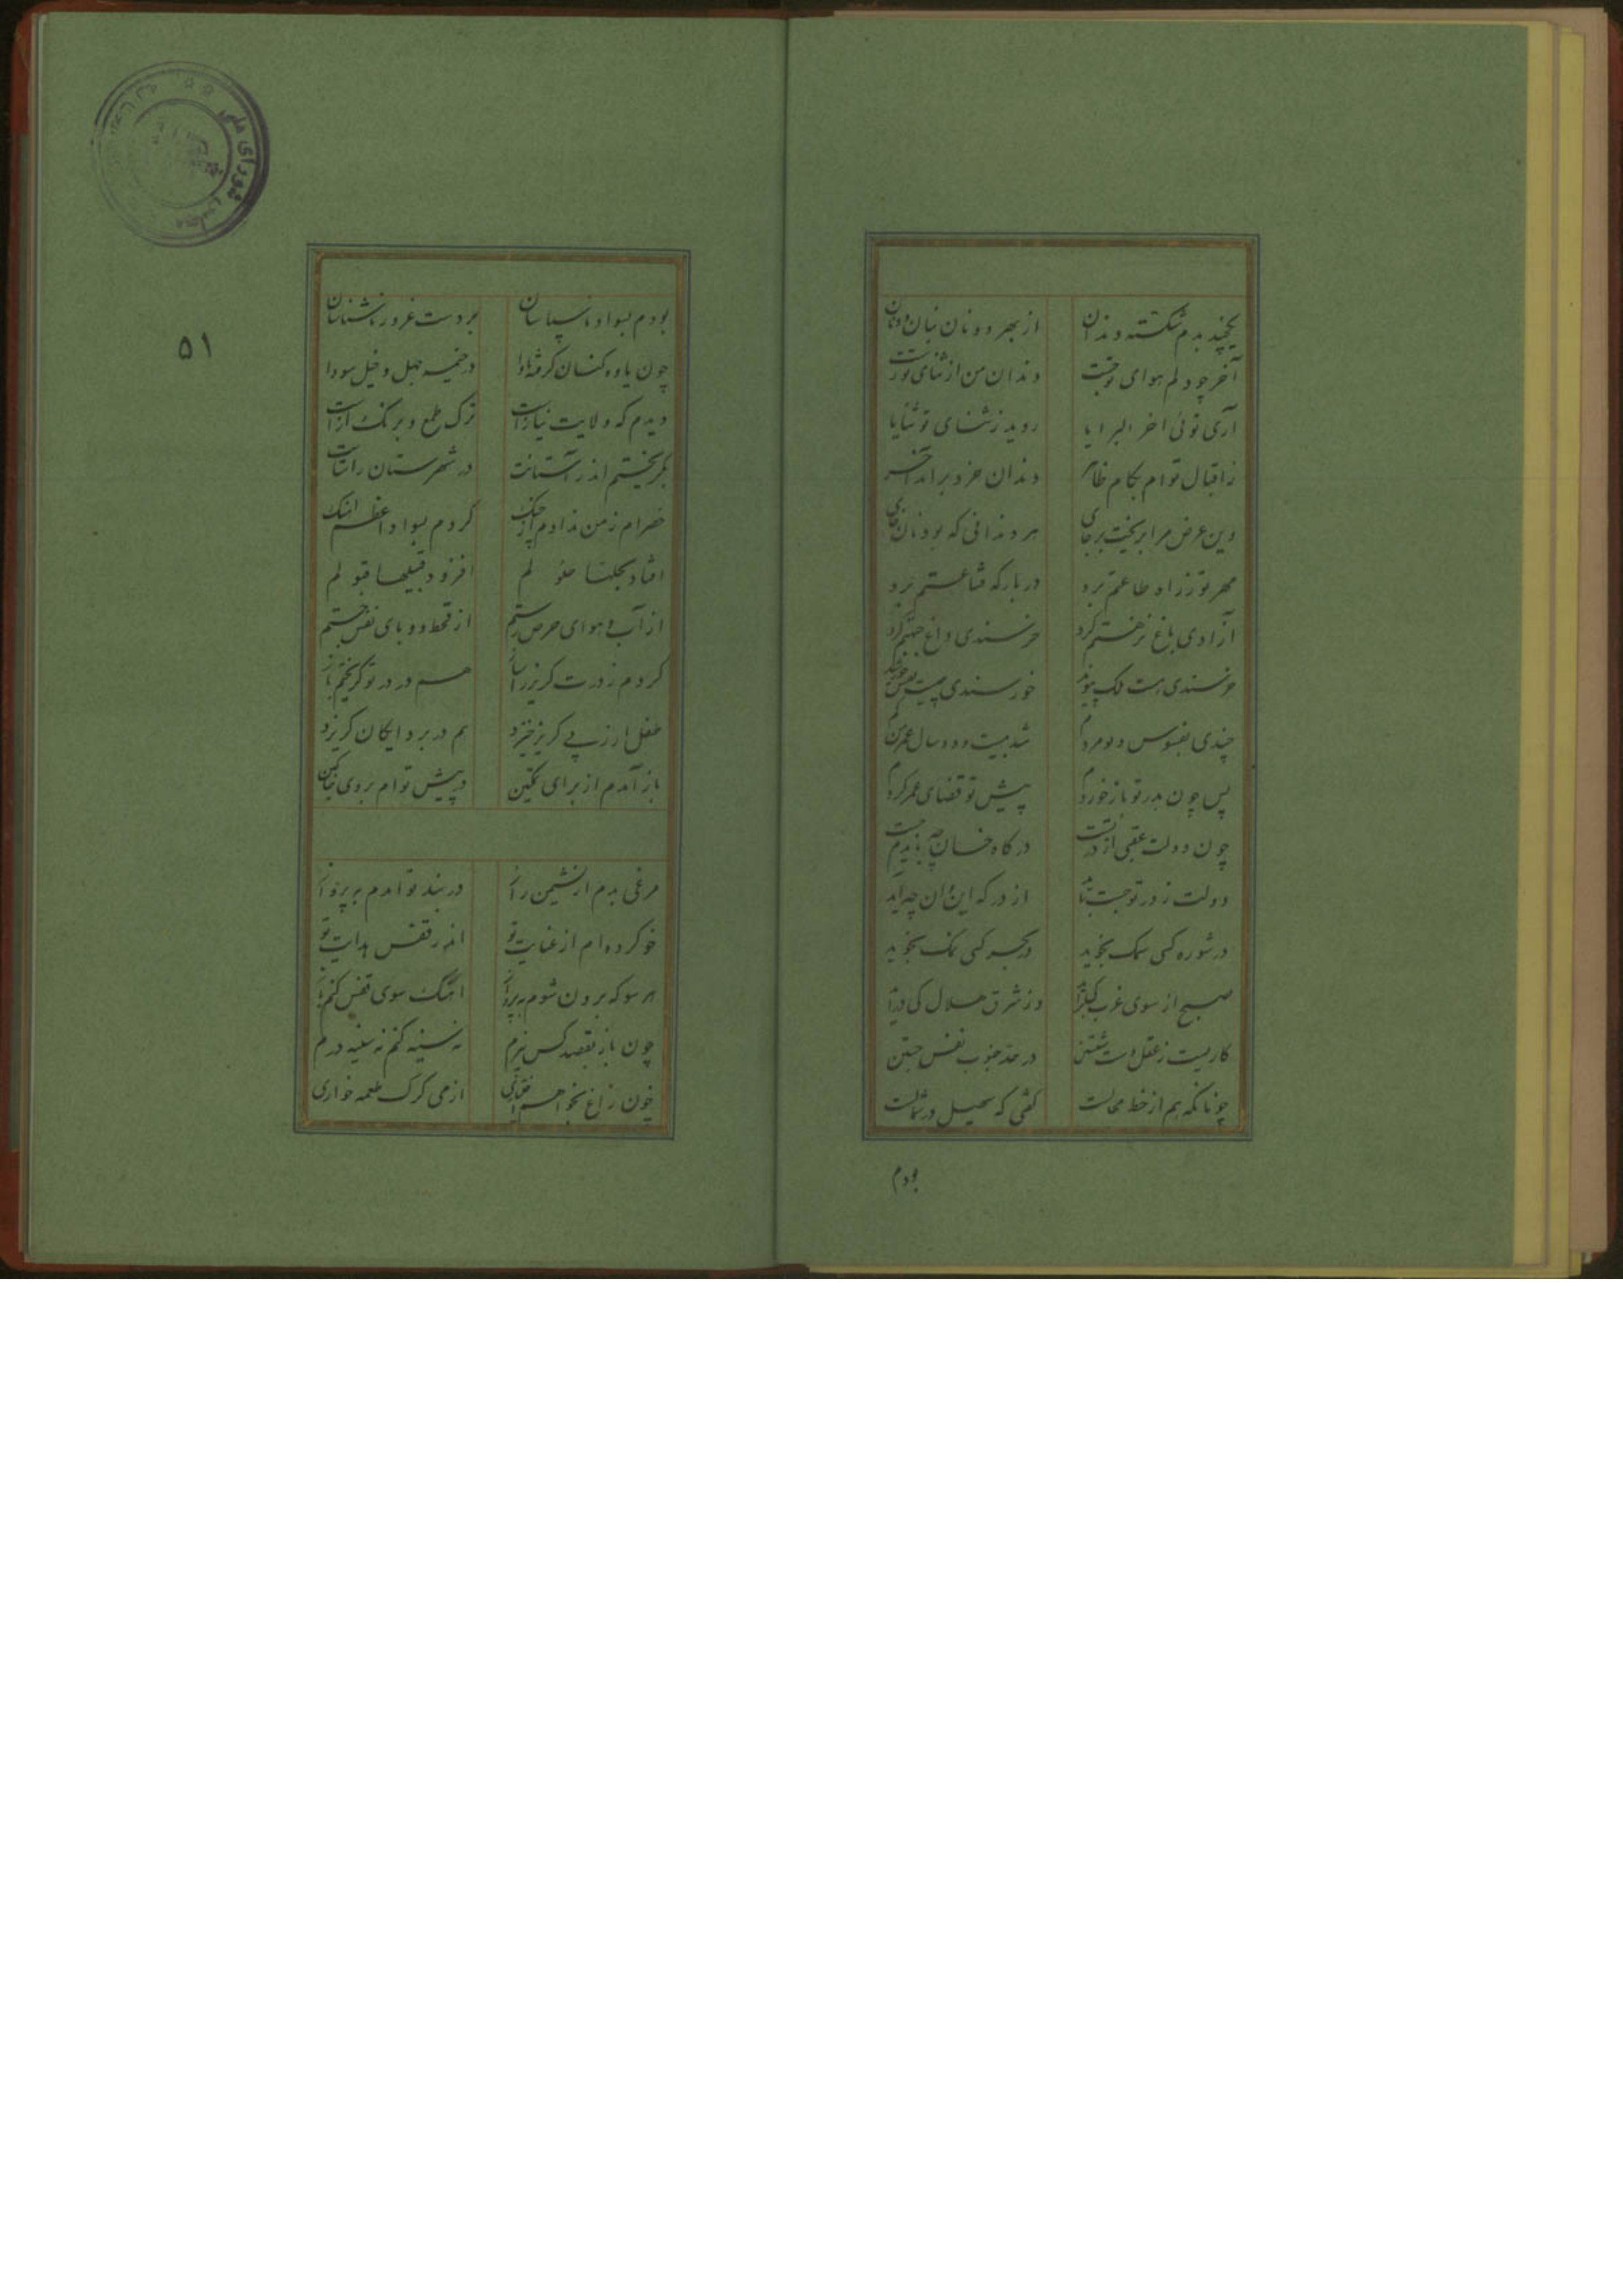 یکچند بدم شکسته دندان از بهر دو نان بنان دونان
آخر چو دلم هوای تو جست دندان من از ثنای تو رست
آری توئی اخر البرایا روید ز ثنای تو ثنایا
ز اقبال توام بکام ظاهر دندان خرد بر آمد آخر
وین عرض مرا بر نجیت بر جای هر دندانی که بود بر جای
مهر تو ز راه طاعتم برد در بارکه قناعتم برد
آزادی باغ نزهتم کرد خرسندی داغ جبهتم کرد
خرسندی هست ملک پیوند خورسندی چیست نفس
چندی بفسوس دیو مردم شد بیست و دو سال عمر من کم
پس چون بدر تو باز خوردم پیش تو قضای عمر کردم
چون دولت عقبی از درت درگاه خسان چه بایدم جست
دولت ز در تو جست باید از درکه این و آن چه آید
در شوره کسی سمک نجوید در بحر کسی نمک نجوید
صبح از سوی غرب کی گذارد وز شرق هلال کی
کاریست ز عقل دست شستن در حد جنوب نعش جستن
چونانکه هم از خط محالست کفتی که سهیل در شمالست
بودم
۵۱
بودم بسواد ناسپاسان بر دست غرور ناشناسان
چون یاوه کنسان کرفته ماوا در خیمه جهل و خیل سودا
دیدم که ولایت نیازست ترک طمع و برنک آزست
بکریختم اندر آستانت در شهرستان راستانت
خصرام ز من ندادم کردم بسواد اعظم اهنک
افتاد بجلتا حلولم افزود قبیلها قبولم
از آب و هوای حرص رستم از قحط و وبای نفس جستم
کردم ز درت کریز ز آغاز هم در در تو کریختم باز
طفل ار ز پی کریز خیزد هم در بر دایکان کریزد
باز آمدم از برای تمکین در پیش توام بروی خاکین
مرغی بدم از نشیمن راز در بند تو آمدم بپرواز
خو کرده ام از عنایت تو اندر قفس هدایت تو
هر سو که برون شوم بپرواز اهنک سوی قفس کنم باز
چون باز بقصد کس نپرم نه سینه کنم نه سینه درم
چون زاغ نخواهم از می کرک طعمه خواری